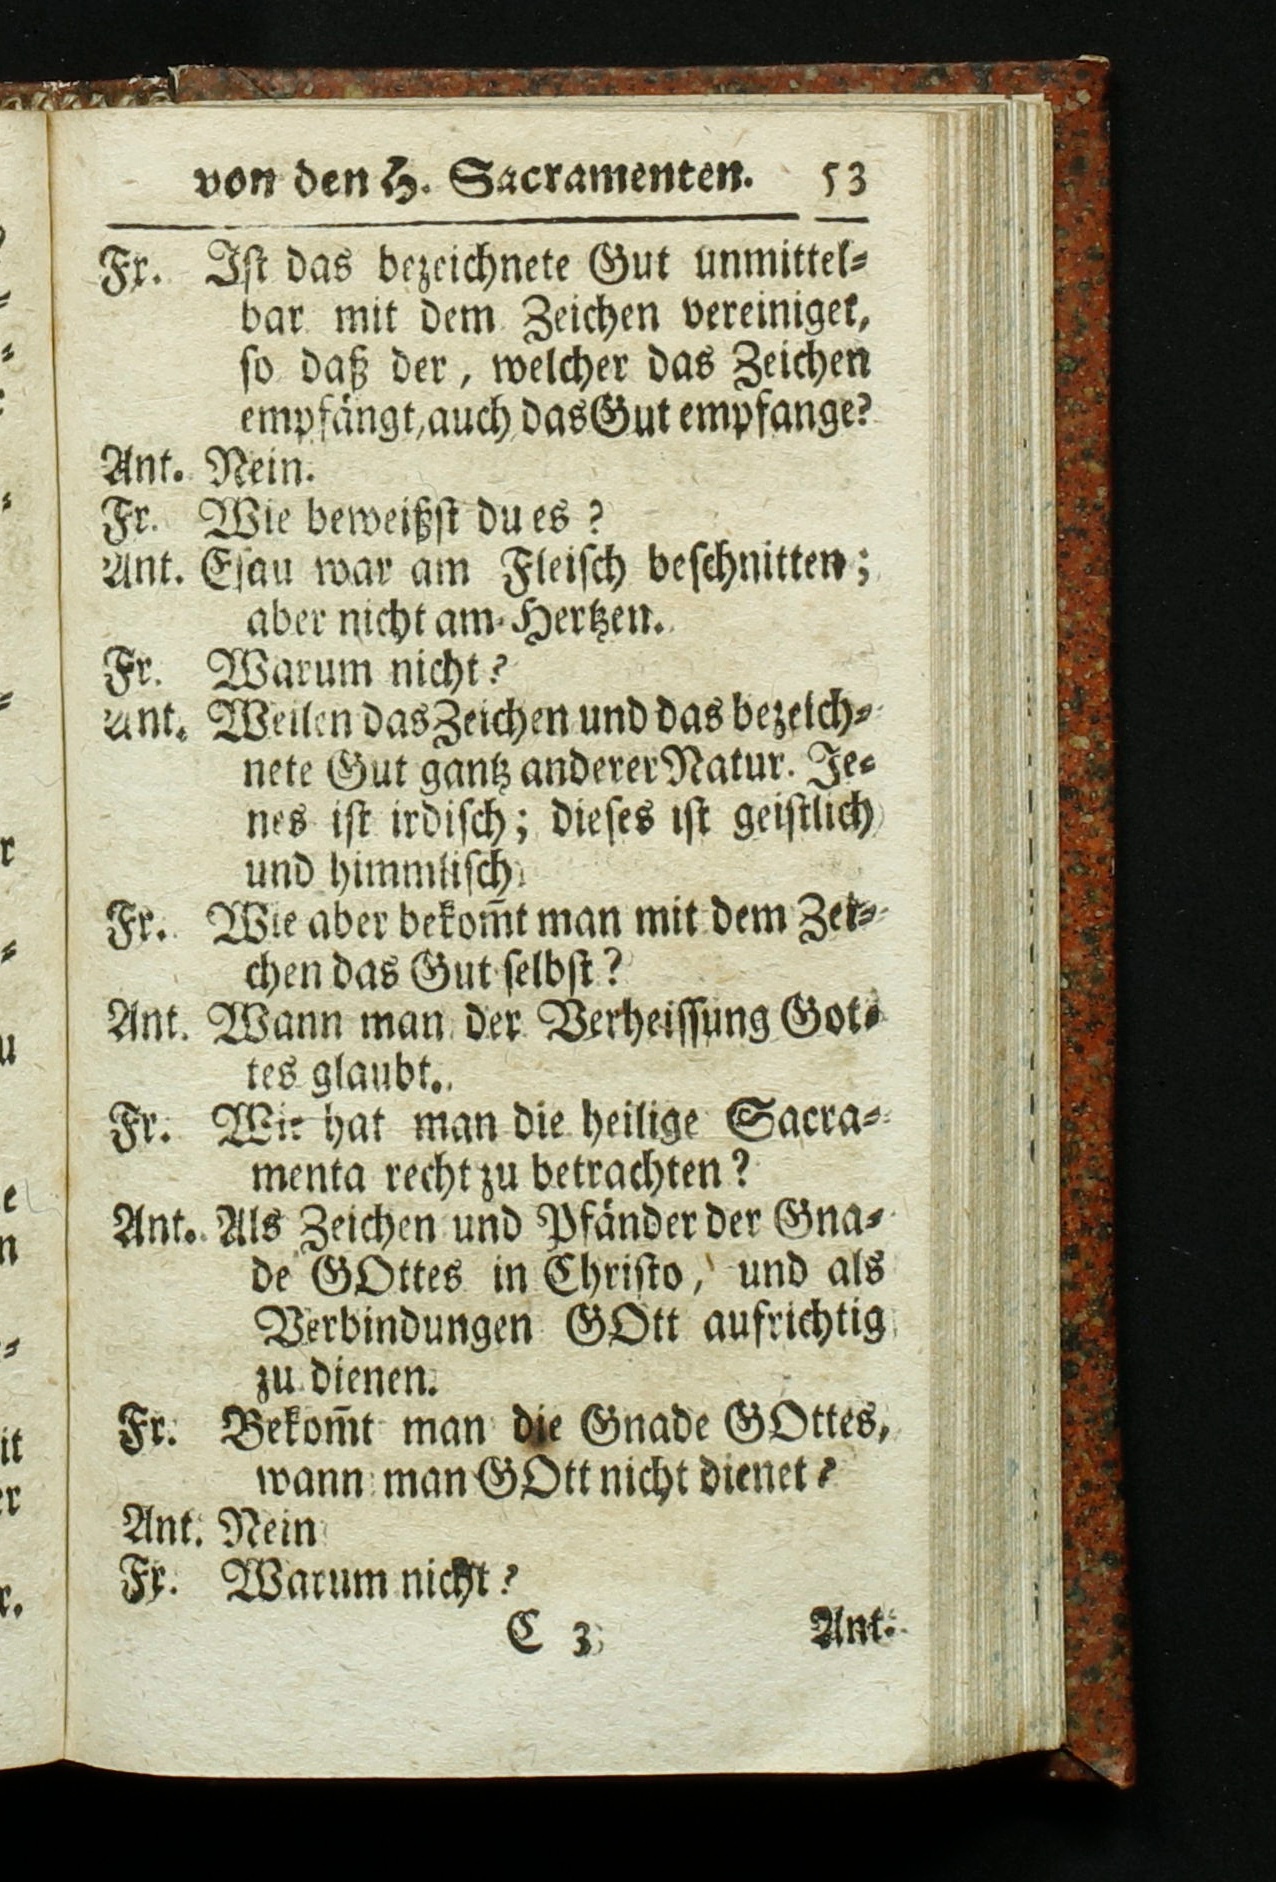 von den H. Sacramenten. 53
Fr. Ist das bezeichnete Gut unmittel-
bar mit dem Zeichen vereiniget,
so daß der, welcher das Zeichen
empfängt, auch das Gut empfange?
Ant. Nein.
Fr. Wie beweißst du es?
Ant. Esau war am Fleisch beschnitten;
aber nicht am Hertzen.
Fr. Warum nicht?
Ant. Weilen das Zeichen und das bezeich-
nete Gut gantz anderer Natur. Je-
nes ist irdisch; dieses ist geistlich
und himmlisch.
Fr. Wie aber bekom̅t man mit dem Zei-
chen das Gut selbst?
Ant. Wann man der Verheissung Got-
tes glaubt.
Fr. Wie hat man die heilige Sacra-
menta recht zu betrachten?
Ant. Als Zeichen und Pfänder der Gna-
de GOttes in Christo, und als
Verbindungen GOtt aufrichtig
zu dienen.
Fr. Bekom̅t man die Gnade GOttes,
wann man GOtt nicht dienet?
Ant. Nein
Fr. Warum nicht?
C 3 Ant.